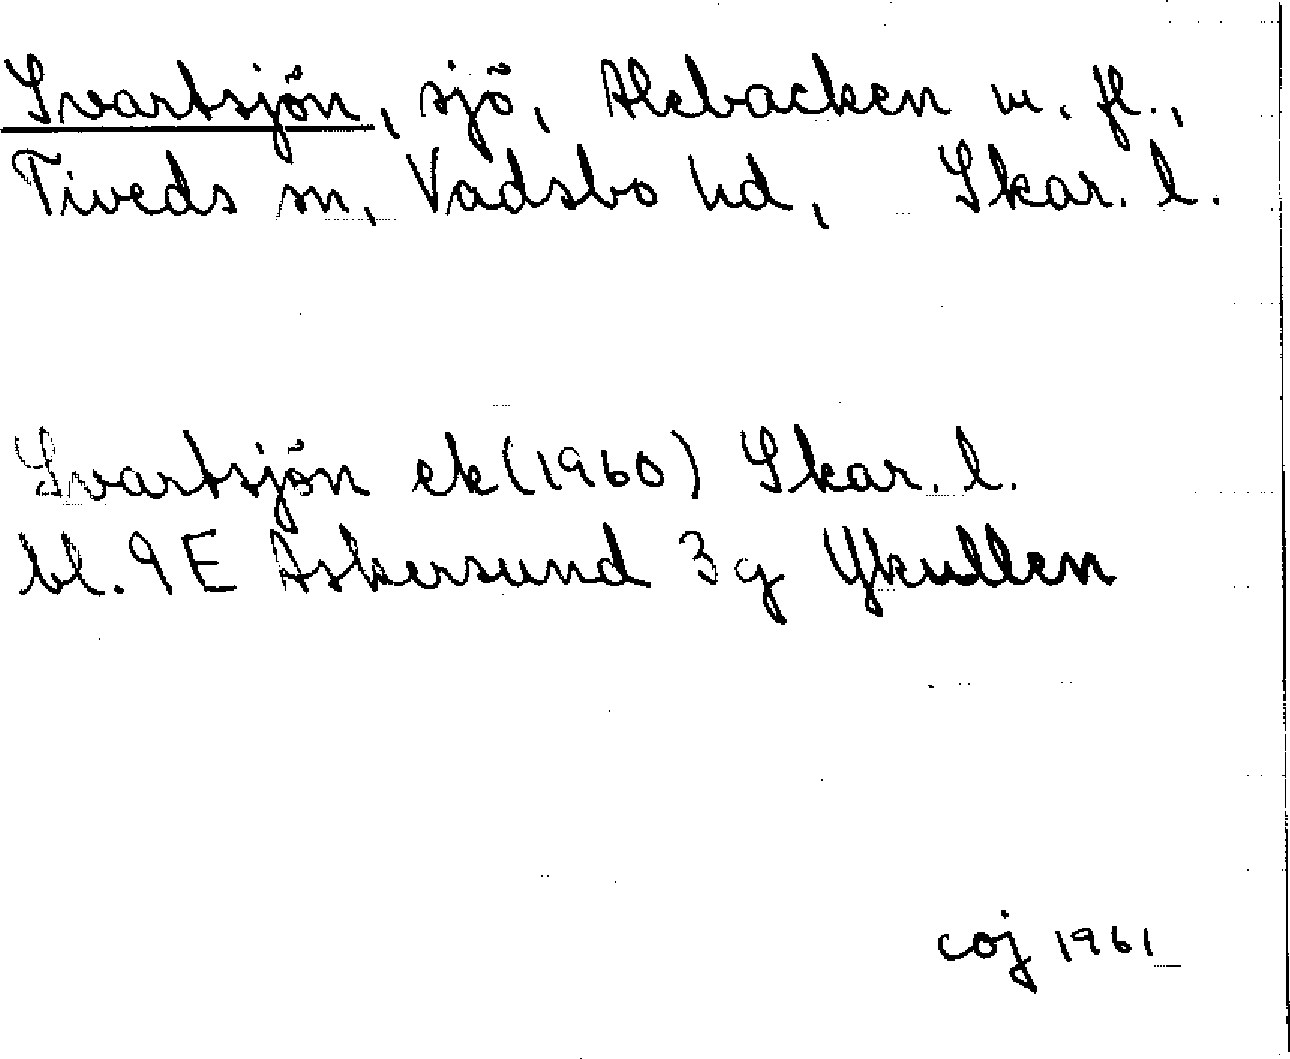 Svartsjön, sjö, Alebacken m. fl.,
Tiveds sn, Vadsbo hd, Skar. l.
Svartsjön ek (1960) Skar. l.
bl. 9E Askersund 3g Ykullen
coj 1961